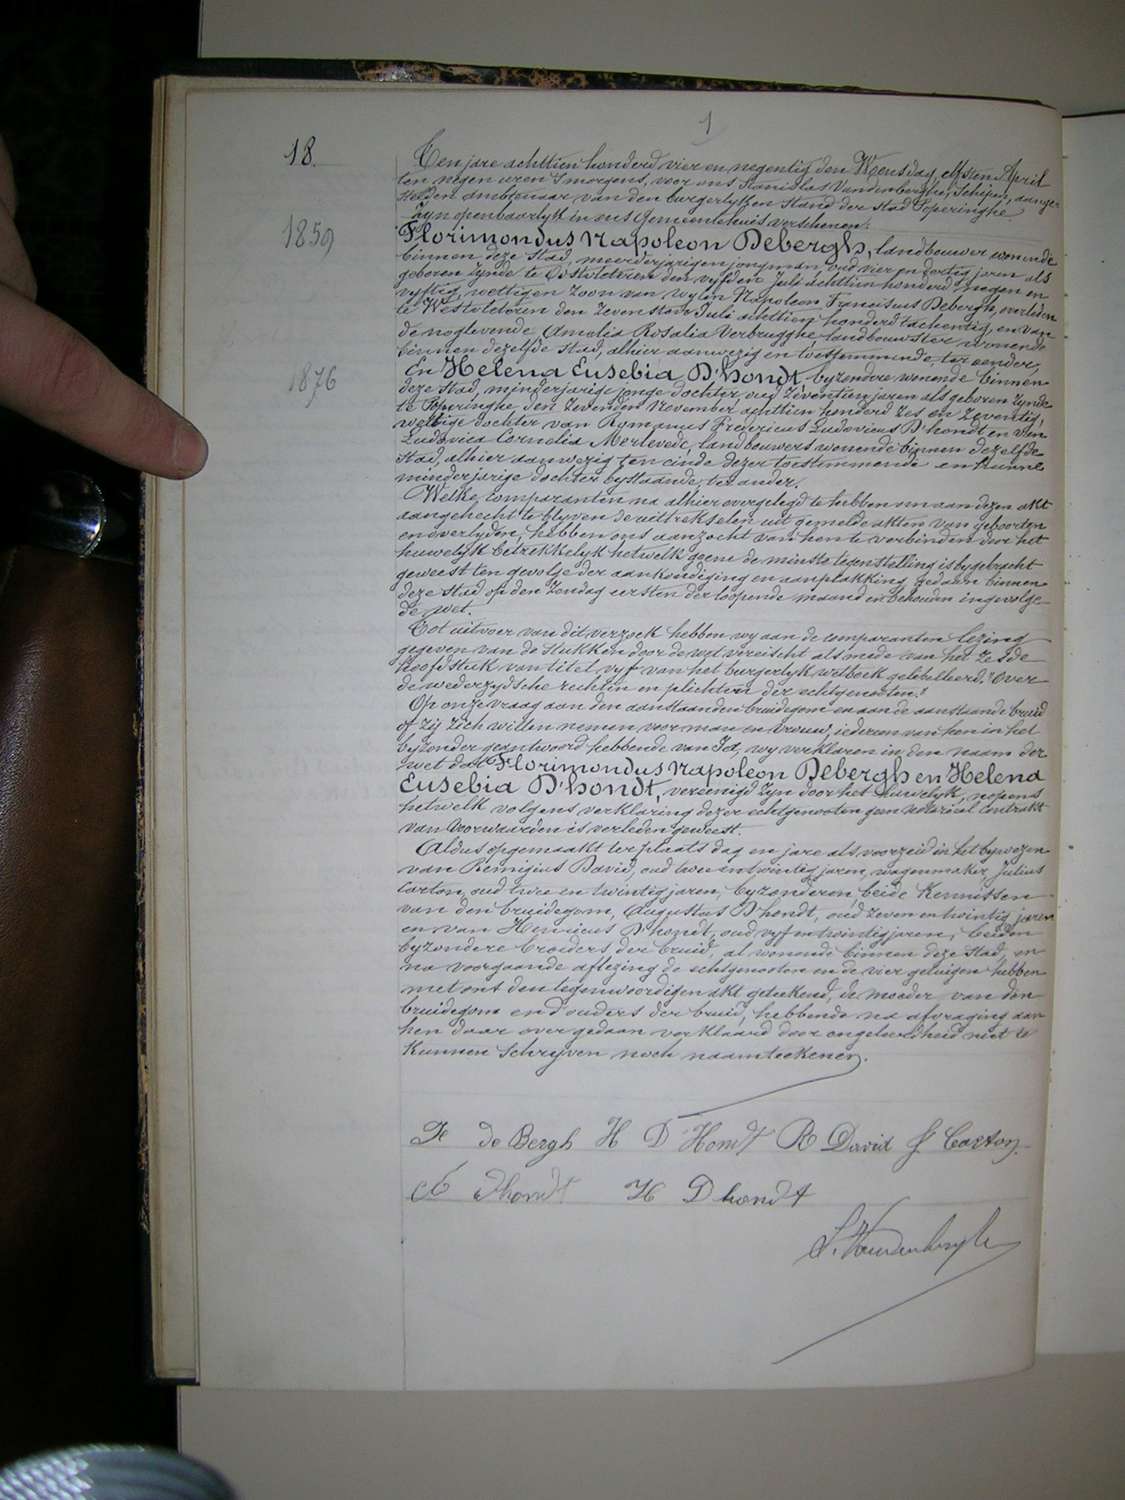 1
18.
Ten jare achttien honderd vier en negentig den Woensdag, elfsten April
ten negen uren 's morgens, voor ons Stanislas Vandenberghe, Schepen, aange-
stelden ambtenaar van den burgerlyken stand der stad Poperinghe
zyn openbaarlyk in ons Gemeentehuis verschenen:
1859
Florimondus Napoleon Debergh, landbouwer wonende
binnen deze stad, meerderjarigen jongman, oud vier en dertig jaren als
geboren zynde te Oostvleteren den vyfden Juli achttien honderd negen en
vyftig, wettigen zoon van wylen Napoleon Franciscus Debergh, overleden
te Westvleteren den zevensten Juli achttien honderd tachentig, en van
de noglevende Amelia Rosalia Verbrugghe, landbouwster wonende
binnen dezelfde stad, alhier aanwezig en toestemmende, ter eender,
1876
En Helena Eusebia D'hondt, byzondere wonende binnen
deze stad, minderjarige jonge dochter oud zeventien jaren als geboren zynde
te Poperinghe, den zevenden November achttien honderd zes en zeventig,
wettige dochter van Romanus Fredericus Ludovicus D'hondt en van
Ludovica Cornelia Merlevede, landbouwers wonende binnen dezelfde
stad, alhier aanwezig ten einde dezer toestemmende en hunne
minderjarige dochter bystaande, ter ander.
Welke comparanten na alhier overgelegd te hebben om aan dezen akt
aangehecht te blyven de uittrekselen uit gemelde akten van geboorten
en overlyden, hebben ons aanzocht van hen te verbinden door het
huwelyk betrekkelyk hetwelk geene de minste tegenstelling is bygebracht
geweest ten gevolge der aankondiging en aanplakking gedaan binnen
deze stad op den Zondag eersten der loopende maand en behouden ingevolge
de wet.
Tot uitvoer van dit verzoek hebben wy aan de comparanten lezing
gegeven van de stukken door de wet vereischt als mede van het zesde
hoofdstuk van titel vyf van het burgerlyk wetboek getiteld: "Over
de wederzydsche rechten en plichten der echtgenooten."
Op onze vraag aan den aanstaanden bruidegom en aan de aanstaande bruid
of zij zich willen nemen voor man en vrouw, iedereen van hen in het
byzonder geantwoord hebbende van Ja, wy verklaren in den naam der
wet dat Florimondus Napoleon Debergh en Helena
Eusebia D'hondt, vereenigd zyn door het huwelyk, nopens
hetwelk volgens verklaring dezer echtgenooten geen notarieel contrakt
van voorwaarden is verleden geweest.
Aldus opgemaakt ter plaats dag en jare als voorzeid in het bywezen
van Remigius David, oud twee en twintig jaren, wagenmaker, Julius
Carton, oud twee en twintig jaren, byzonderen, beide kennissen
van den bruidegom, Augustus D'hondt, oud zeven en twintig jaren
en van Henricus D'hondt, oud vyf en twintig jaren, beiden
byzondere broeders der bruid, al wonende binnen deze stad, en
na voorgaande aflezing de echtgenooten en de vier getuigen hebben
met ons den tegenwoordigen akt geteekend, de moeder van den
bruidegom en d'ouders der bruid, hebbende na afvraging aan
hen daar over gedaan verklaard door ongeleerdheid niet te
kunnen schryven noch naamteekenen.
F de Bergh H D'Hondt R David J. Carton.
A Dhondt H Dhondt
S. Vandenberghe